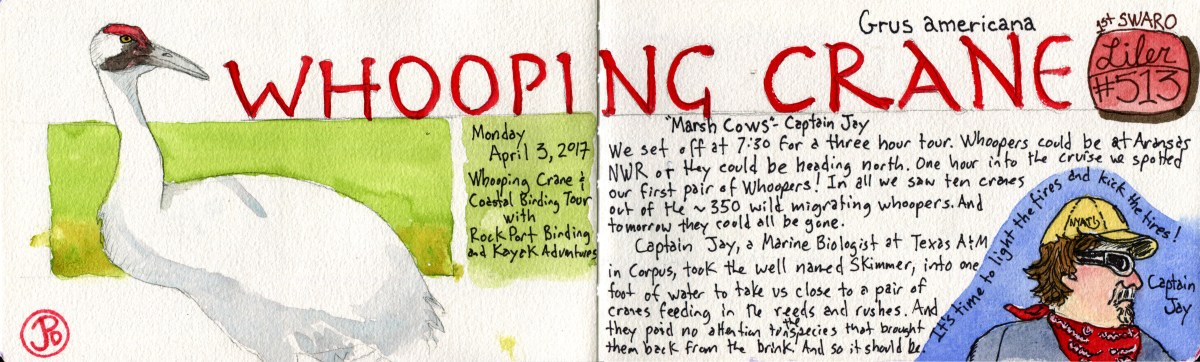 Grus americana
1st SWARO
Lifer
#513
WHOOPING CRANE
Monday
April 3, 2017
Whooping Crane &
Coastal Birding Tour
with
Rockport Birding
and Kayak Adventures
"Marsh Cows" - Captain Jay
We set off at 7:30 for a three hour tour. Whoopers could be at Aransas
NWR or they could be heading north. One hour into the cruise we spotted
our first pair of Whoopers! In all we saw ten cranes
out of the ~350 wild migrating whoopers. And
tomorrow they could all be gone.
Captain Jay, a Marine Biologist at Texas A+M
in Corpus, took the well named Skimmer, into one
foot of water to take us close to a pair of
cranes feeding in the reeds and rushes. And
they paid no attention to the species that brought
them back from the brink. And so it should be.
It's time to light the fires and kick the tires!
NYATI
Captain
Jay
JPD